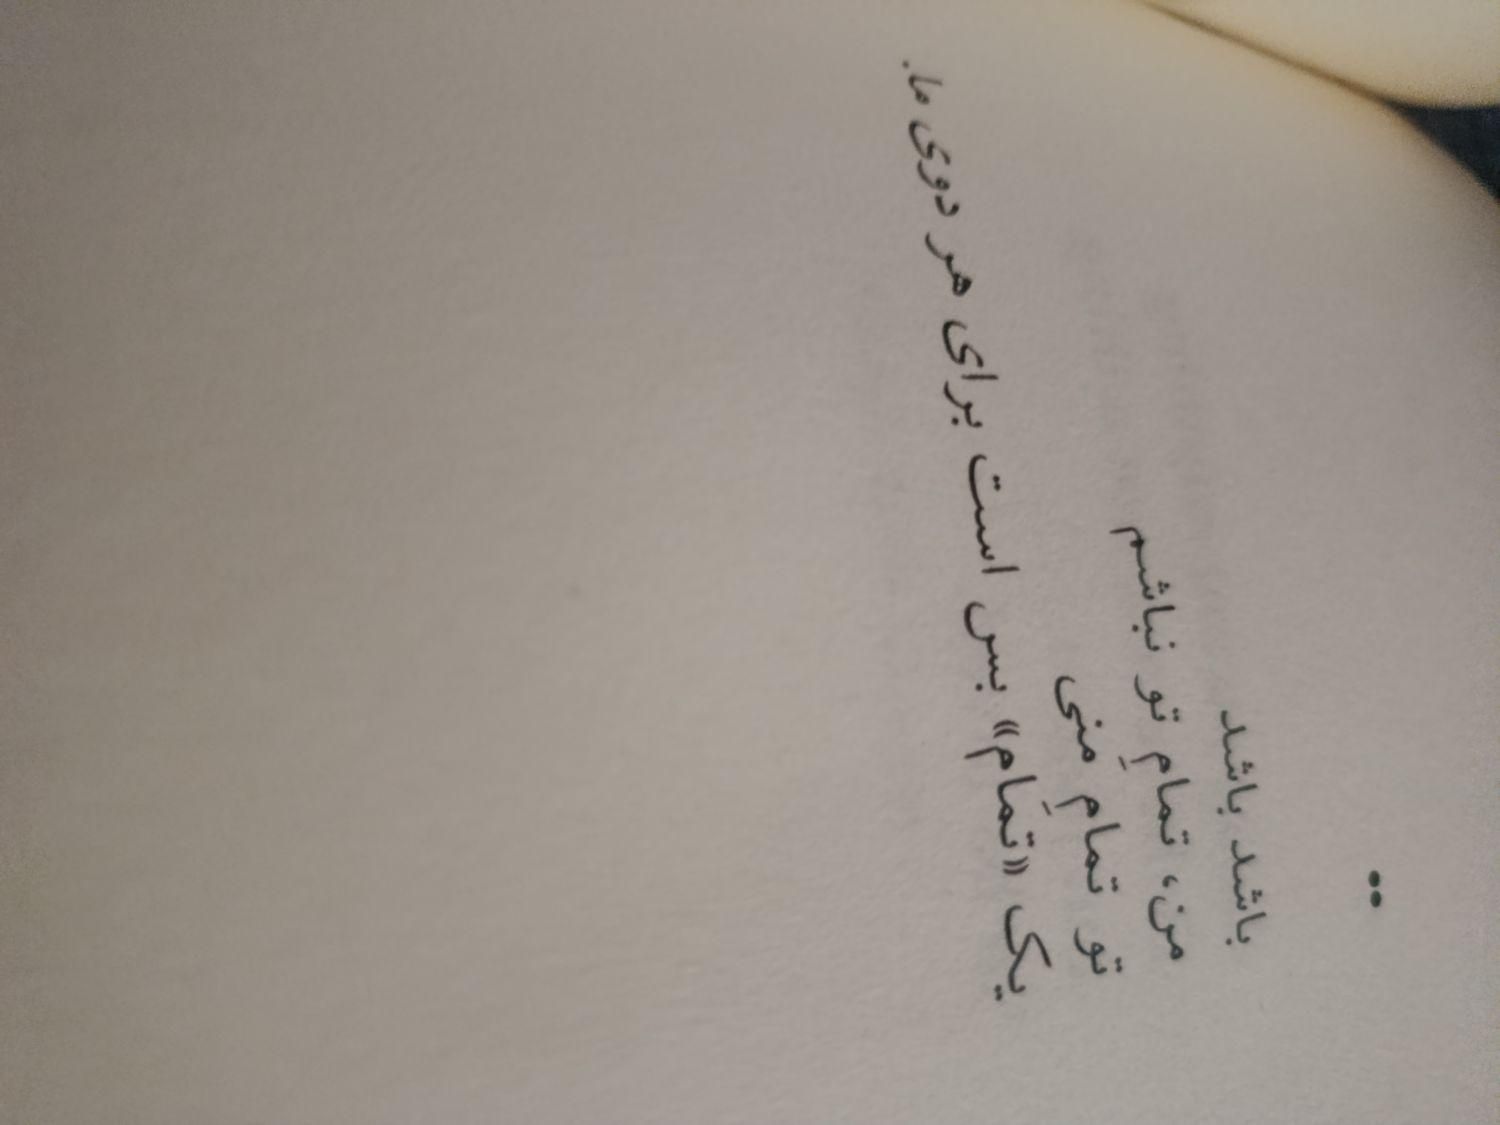 باشد باشد
من، تمامِ تو نباشم
تو تمامِ منی
یک «تمام» بس است برای هر دوی ما.